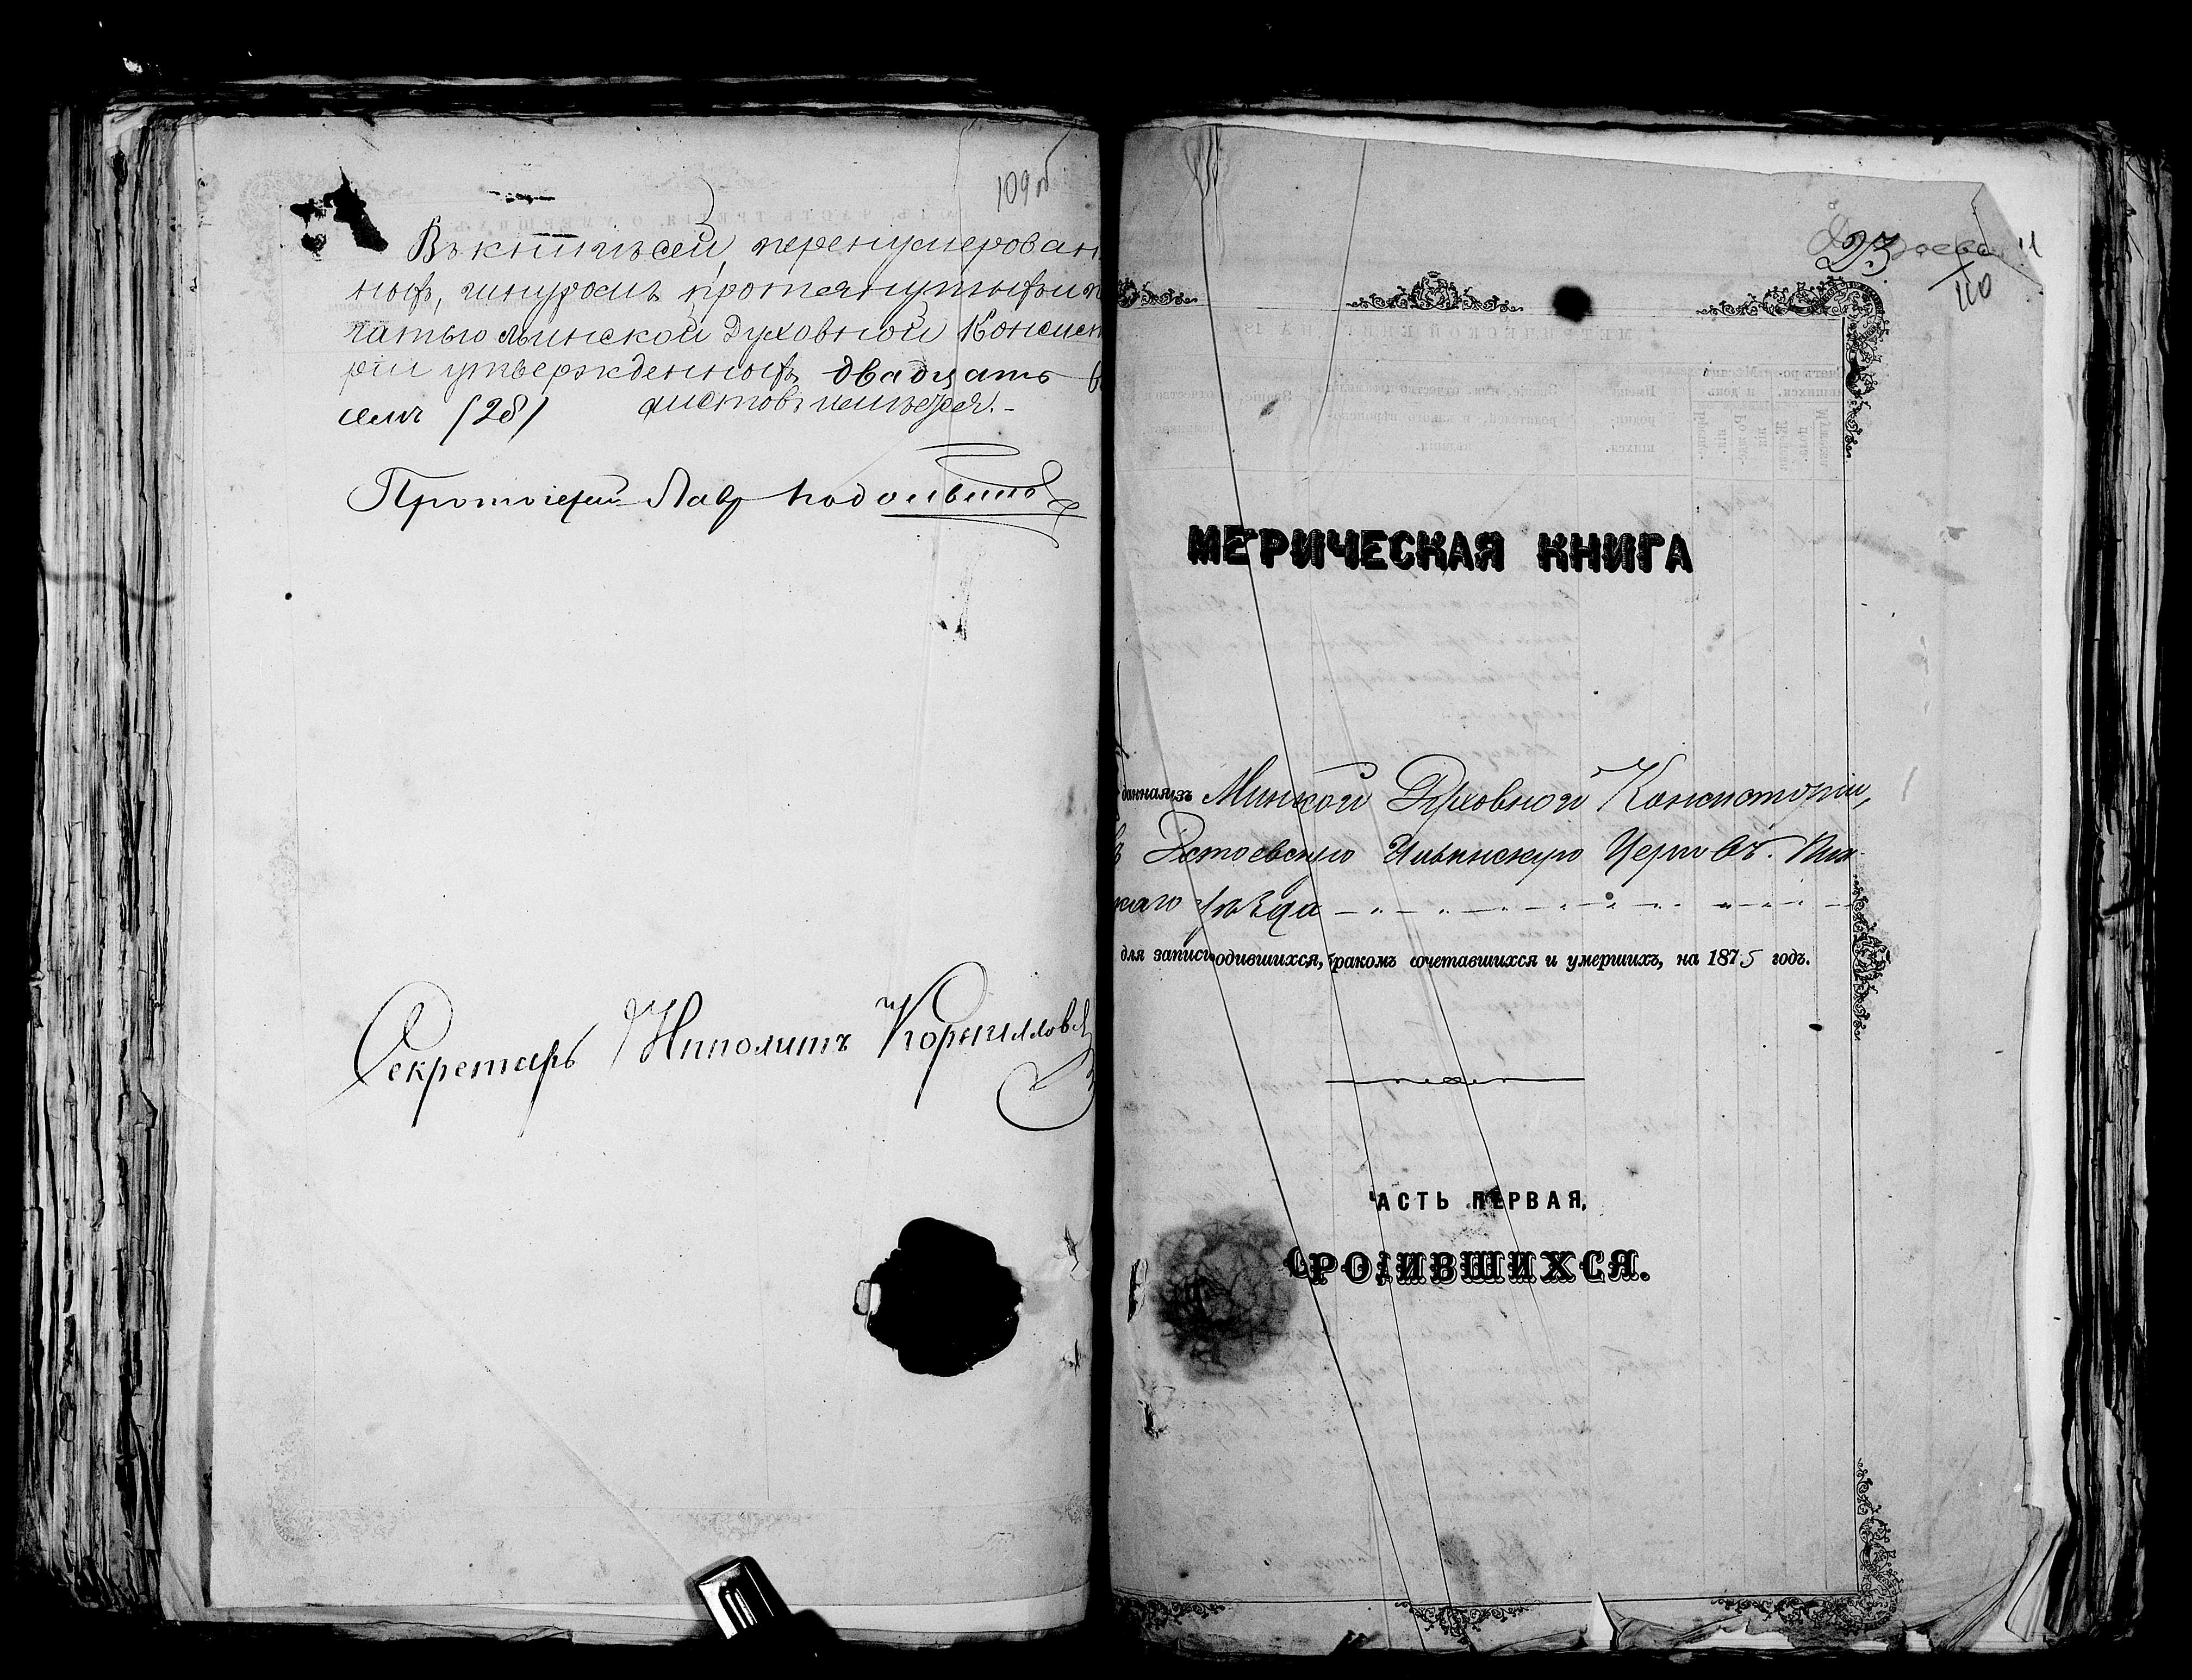 109об
Въ книгѣ сей, перенумерован
ныхъ, шнуромъ протянутыхъ и п
чатью Минской Духовной Консист
ріи утвержденныхъ двадцать в
семь /28/ листовъ имѣется.-
Протоіерей Лавр
Секретарь Ипполитъ Корнилов
23
110
МЕРИЧЕСКАЯ КНИГА
данная изъ Минской Духовной Консисторіи,
въ Достоевскую Ильинскую Церковь. Пин-
скаго уѣзда
для записи одившихся, ракомъ сочетавшихся и умершихъ, на 1875 годъ.
АСТЬ ПЕРВАЯ,
РОДИВШИХСЯ.